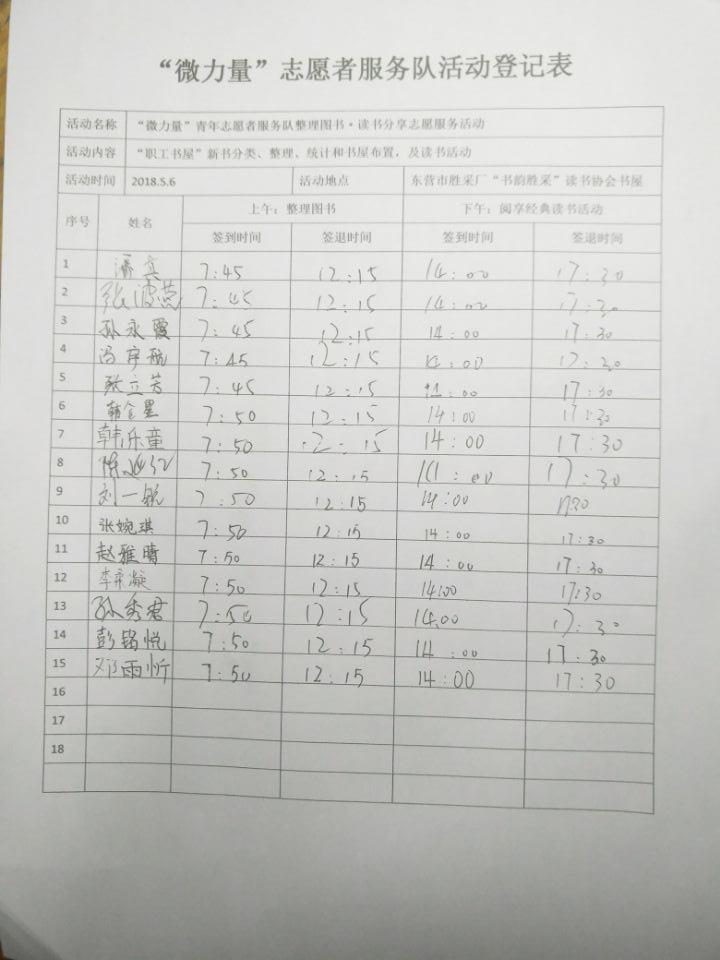 “微力量”志愿者服务队活动登记表
活动名称 “微力量”青年志愿者服务队整理图书·读书分享志愿服务活动
活动内容 “职工书屋”新书分类、整理、统计和书屋布置，及读书活动
活动时间 2018.5.6 活动地点 东营市胜采厂“书韵胜采”读书协会书屋
序号 姓名 上午：整理图书 下午：阅享经典读书活动
签到时间 签退时间 签到时间 签退时间
1 潘宾 7:45 12:15 14:00 17:30
2 张波燕 7:45 12:15 14:00 17:30
3 孙永霞 7:45 12:15 14:00 17:30
4 冯宇航 7:45 12:15 14:00 17:30
5 张立芳 7:45 12:15 14:00 17:30
6 韩金星 7:50 12:15 14:00 17:30
7 韩乐童 7:50 12:15 14:00 17:30
8 陈 7:50 12:15 14:00 17:30
9 刘一锐 7:50 12:15 14:00 17:30
10 张婉琪 7:50 12:15 14:00 17:30
11 赵雅晴 7:50 12:15 14:00 17:30
12 李采凝 7:50 12:15 14:00 17:30
13 孙秀君 7:50 12:15 14:00 17:30
14 彭铭悦 7:50 12:15 14:00 17:30
15 邓雨忻 7:50 12:15 14:00 17:30
16
17
18